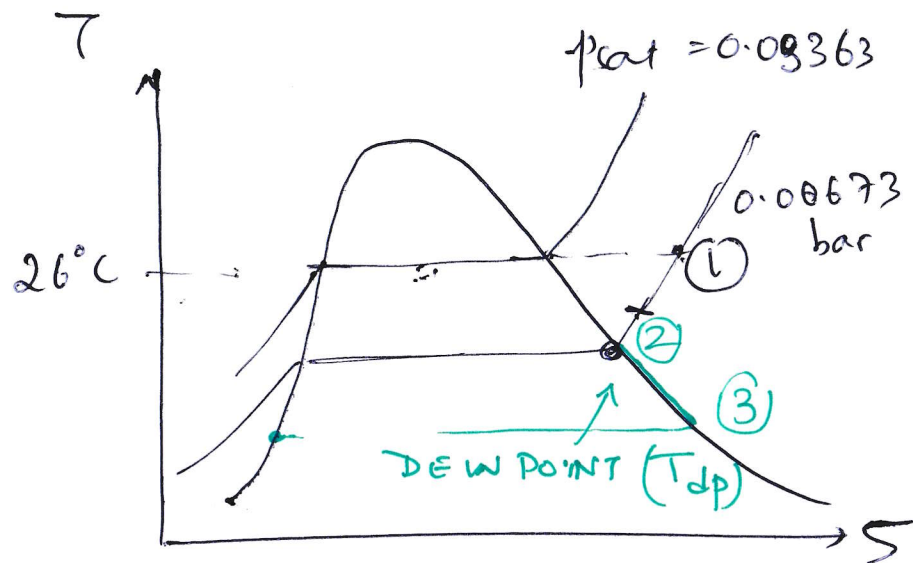 T
psat = 0.09363
0.00673
bar
26°C
①
②
③
DEW POINT (Tdp)
S